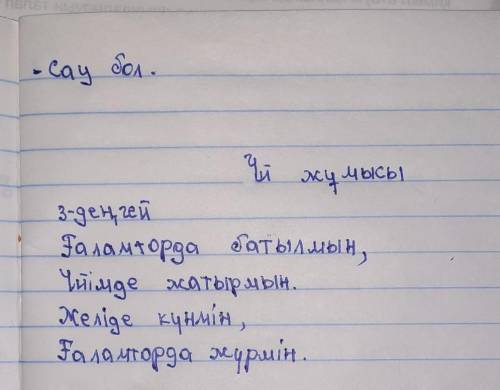 - Сау бол.
Үй жұмысы
3-деңгей
Ғаламторда батылмын,
Үйімде жатырмын.
Желіде күнмін,
Ғаламторда жүрмін.